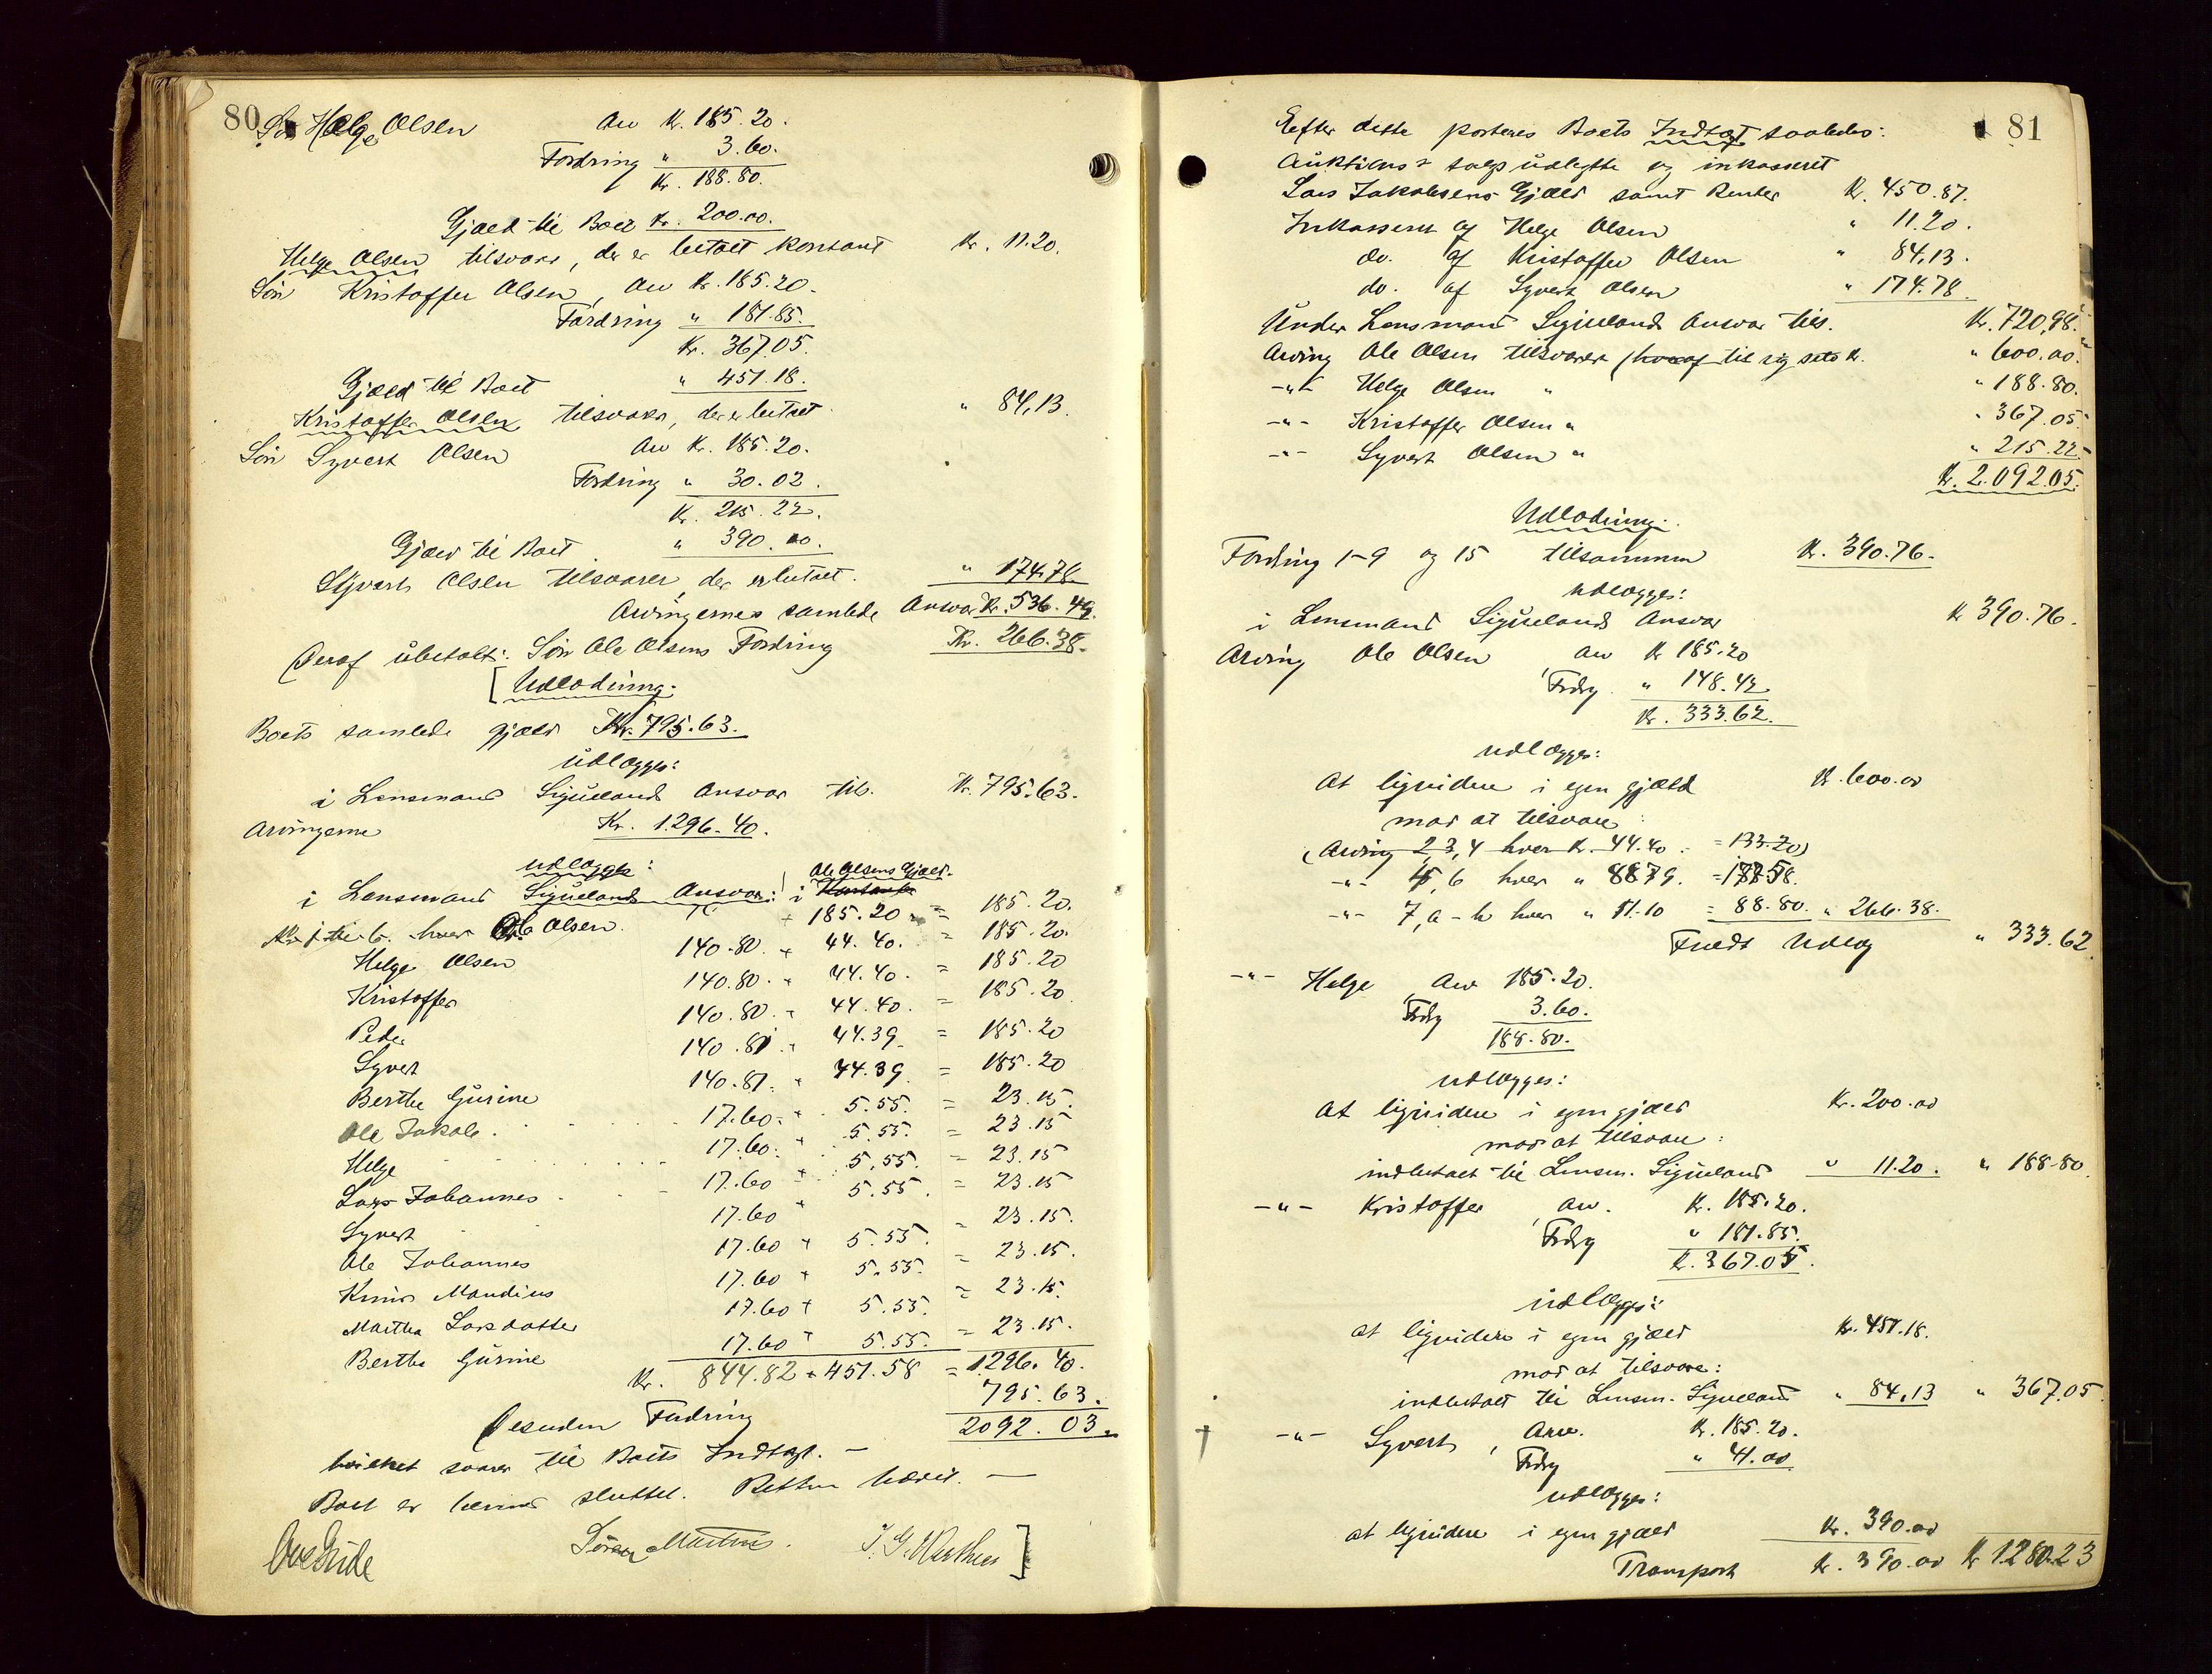 80 Søn Helge Olsen Arv Kr. 185.20.
Fordring " 3.60.
Kr. 188.80.
Gjæld til Boet Kr. 200.00.
Helge Olsen tilsvarer, der er betalt kontant Kr. 11.20.
Søn Kristoffer Olsen, Arv Kr. 185.20.
Fordring " 181.85.
Kr. 367.05.
Gjæld til Boet " 451.18.
Kristoffer Olsen tilsvarer, der er betalt " 84,13.
Søn Syvert Olsen Arv Kr. 185.20.
Fordring " 30.02.
Kr. 215.22.
Gjæld til Boet " 390.00.
Syvert Olsen tilsvarer, der er betalt. " 174.78
Arvingernes samlede Ansvar Kr. 536.49.
Deraf ubetalt: Søn Ole Olsens Fordring Kr. 266.38.
[Udlodning:
Boets samlede gjæld Kr. 795.63.
udlægges:
i Lensmand Sigueland Ansvar til. Kr. 795.63.
Arvingerne Kr. 1296.40.
udlægges: Ole Olsens Gjæld.
i Lensmand Sigueland Ansvar: i
No 1 til 6. hver Ole Olsen. + 185.20 = 185.20.
Helge Olsen 140.80 + 44.40. = 185.20.
Kristoffer 140.80. + 44.40. = 185.20
Peder 140.80. + 44.40. = 185.20
Syvert 140.81. + 44.39 = 185.20
Berthe Gurine 140.81. + 44.39 = 185.20
Ole Jakob. 17.60. + 5.55. = 23.15.
Helge 17.60. + 5.55. = 23.15
Lars Johannes 17.60 + 5.55. = 23.15
Syvert 17.60 + 5.55. = 23.15
Ole Johannes 17.60 + 5.55. = 23.15.
Knud Mandius 17.60 + 5.55. = 23.15.
Martha Larsdatter 17.60 + 5.55. = 23.15.
Berthe Gurine 17.60 + 5.55. = 23.15.
Kr. 844.82 + 451.58 = 1296.40.
Desuden Fordring 795.63.
2092.03.
hvilket svarer til Boets Indtægt. —
Boet er hermed sluttet. Retten hævet. —
Ove Eide Søren Martens. ]
Efter dette posteres Boets Indtægt saaledes: 81
Auktions salg udbytte og inkasseret
Lars Jakobsens Gjæld samt Renter Kr. 450.87.
Inkasseret af Helge Olsen " 11.20.
do. af Kristoffer Olsen " 84,13.
do. af Syvert Olsen " 174.78.
Under Lensmand Sigueland Ansvar tils. Kr. 720,98.
Arving Ole Olsen tilsvarer (hvoraf til sig selv Kr. " 600.00.
-"- Helge Olsen " " 188.80.
-"- Kristoffer Olsen " " 367.05.
-"- Syvert Olsen " " 215.22.
Kr. 2.092.05.
Udlodning:
Fordring 1-9 og 15 tilsammen Kr. 390.76.
udlægges:
i Lensmand Sigueland Ansvar Kr 390.76.
Arving Ole Olsen Arv Kr 185.20
Fdrg. " 148.42
Kr. 333.62.
udlægges:
At liquidere i egen gjæld Kr. 600.00
mod at tilsvare:
(Arving 2,3,4 hver Kr. 44.40. = 133.20)
-"- 5,6 hver " 88.79. = 177.58.
-"- 7, a-h hver " 11.10 = 88.80. " 266.38.
Fuldt Udlæg " 333.62
-"- Helge Arv 185.20.
Fdrg 3.60.
188.80.
udlægges:
At liquidere i egen gjæld Kr. 200.00
mod at tilsvare:
indbetalt til Lensm. Sigueland " 11.20. " 188.80.
-"- Kristoffer, Arv. Kr. 185.20.
Fdrg " 181.85.
Kr. 367.05.
udlægges:
at liquidere i egen gjæld Kr. 451.18.
mod at tilsvare:
indbetalt til Lensm. Sigueland " 84,13 " 367.05.
† -"- Syvert, Arv. Kr. 185.20.
Fdrg " 41.00
udlægges:
at liquidere i egen gjæld Kr. 390.00
Transport Kr. 390.00 Kr 1280.23